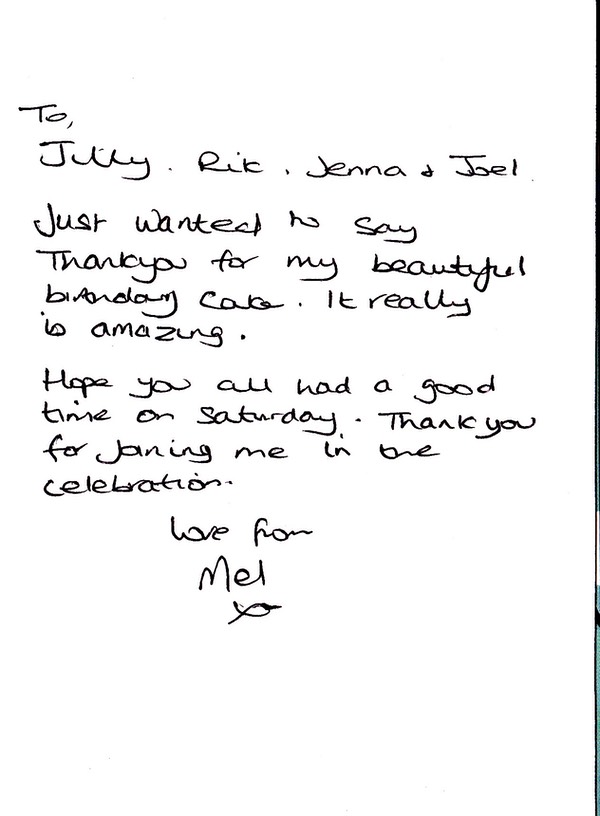 To,
Jilly. Rik, Jenna & Joel.
Just wanted to say
Thankyou for my beautyful
birthday cake. It really
is amazing.
Hope you all had a good
time on Saturday. Thankyou
for joining me in the
celebration.
Love from
Mel
x